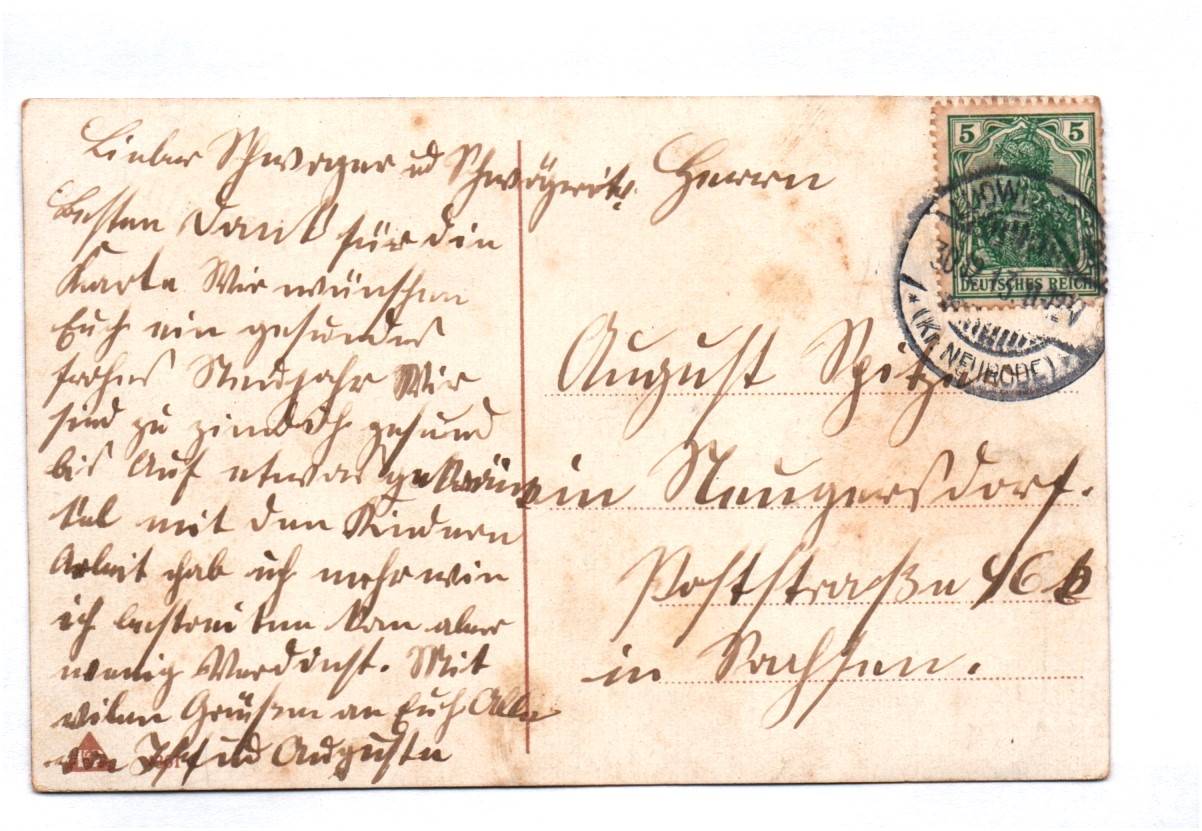 Lieber Schwager ud Schwögerin,
besten Dank für die
Karte Wir wünschen
Euch ein gesundes
frohes Neujahr Wir
sind zu zimlich gesund
bis Auf etwas
mit den Kindern
Arbeit hab ich mehr wie
ich bestreiten kan aber
wenig Verdinst. Mit
vilen Grüßen an Euch Alle
von ud Auguste
Herrn
August
in Neugersdorf.
Poststraße
in Sachsen.
5 5
DEUTSCHES REICH
NEURODE)